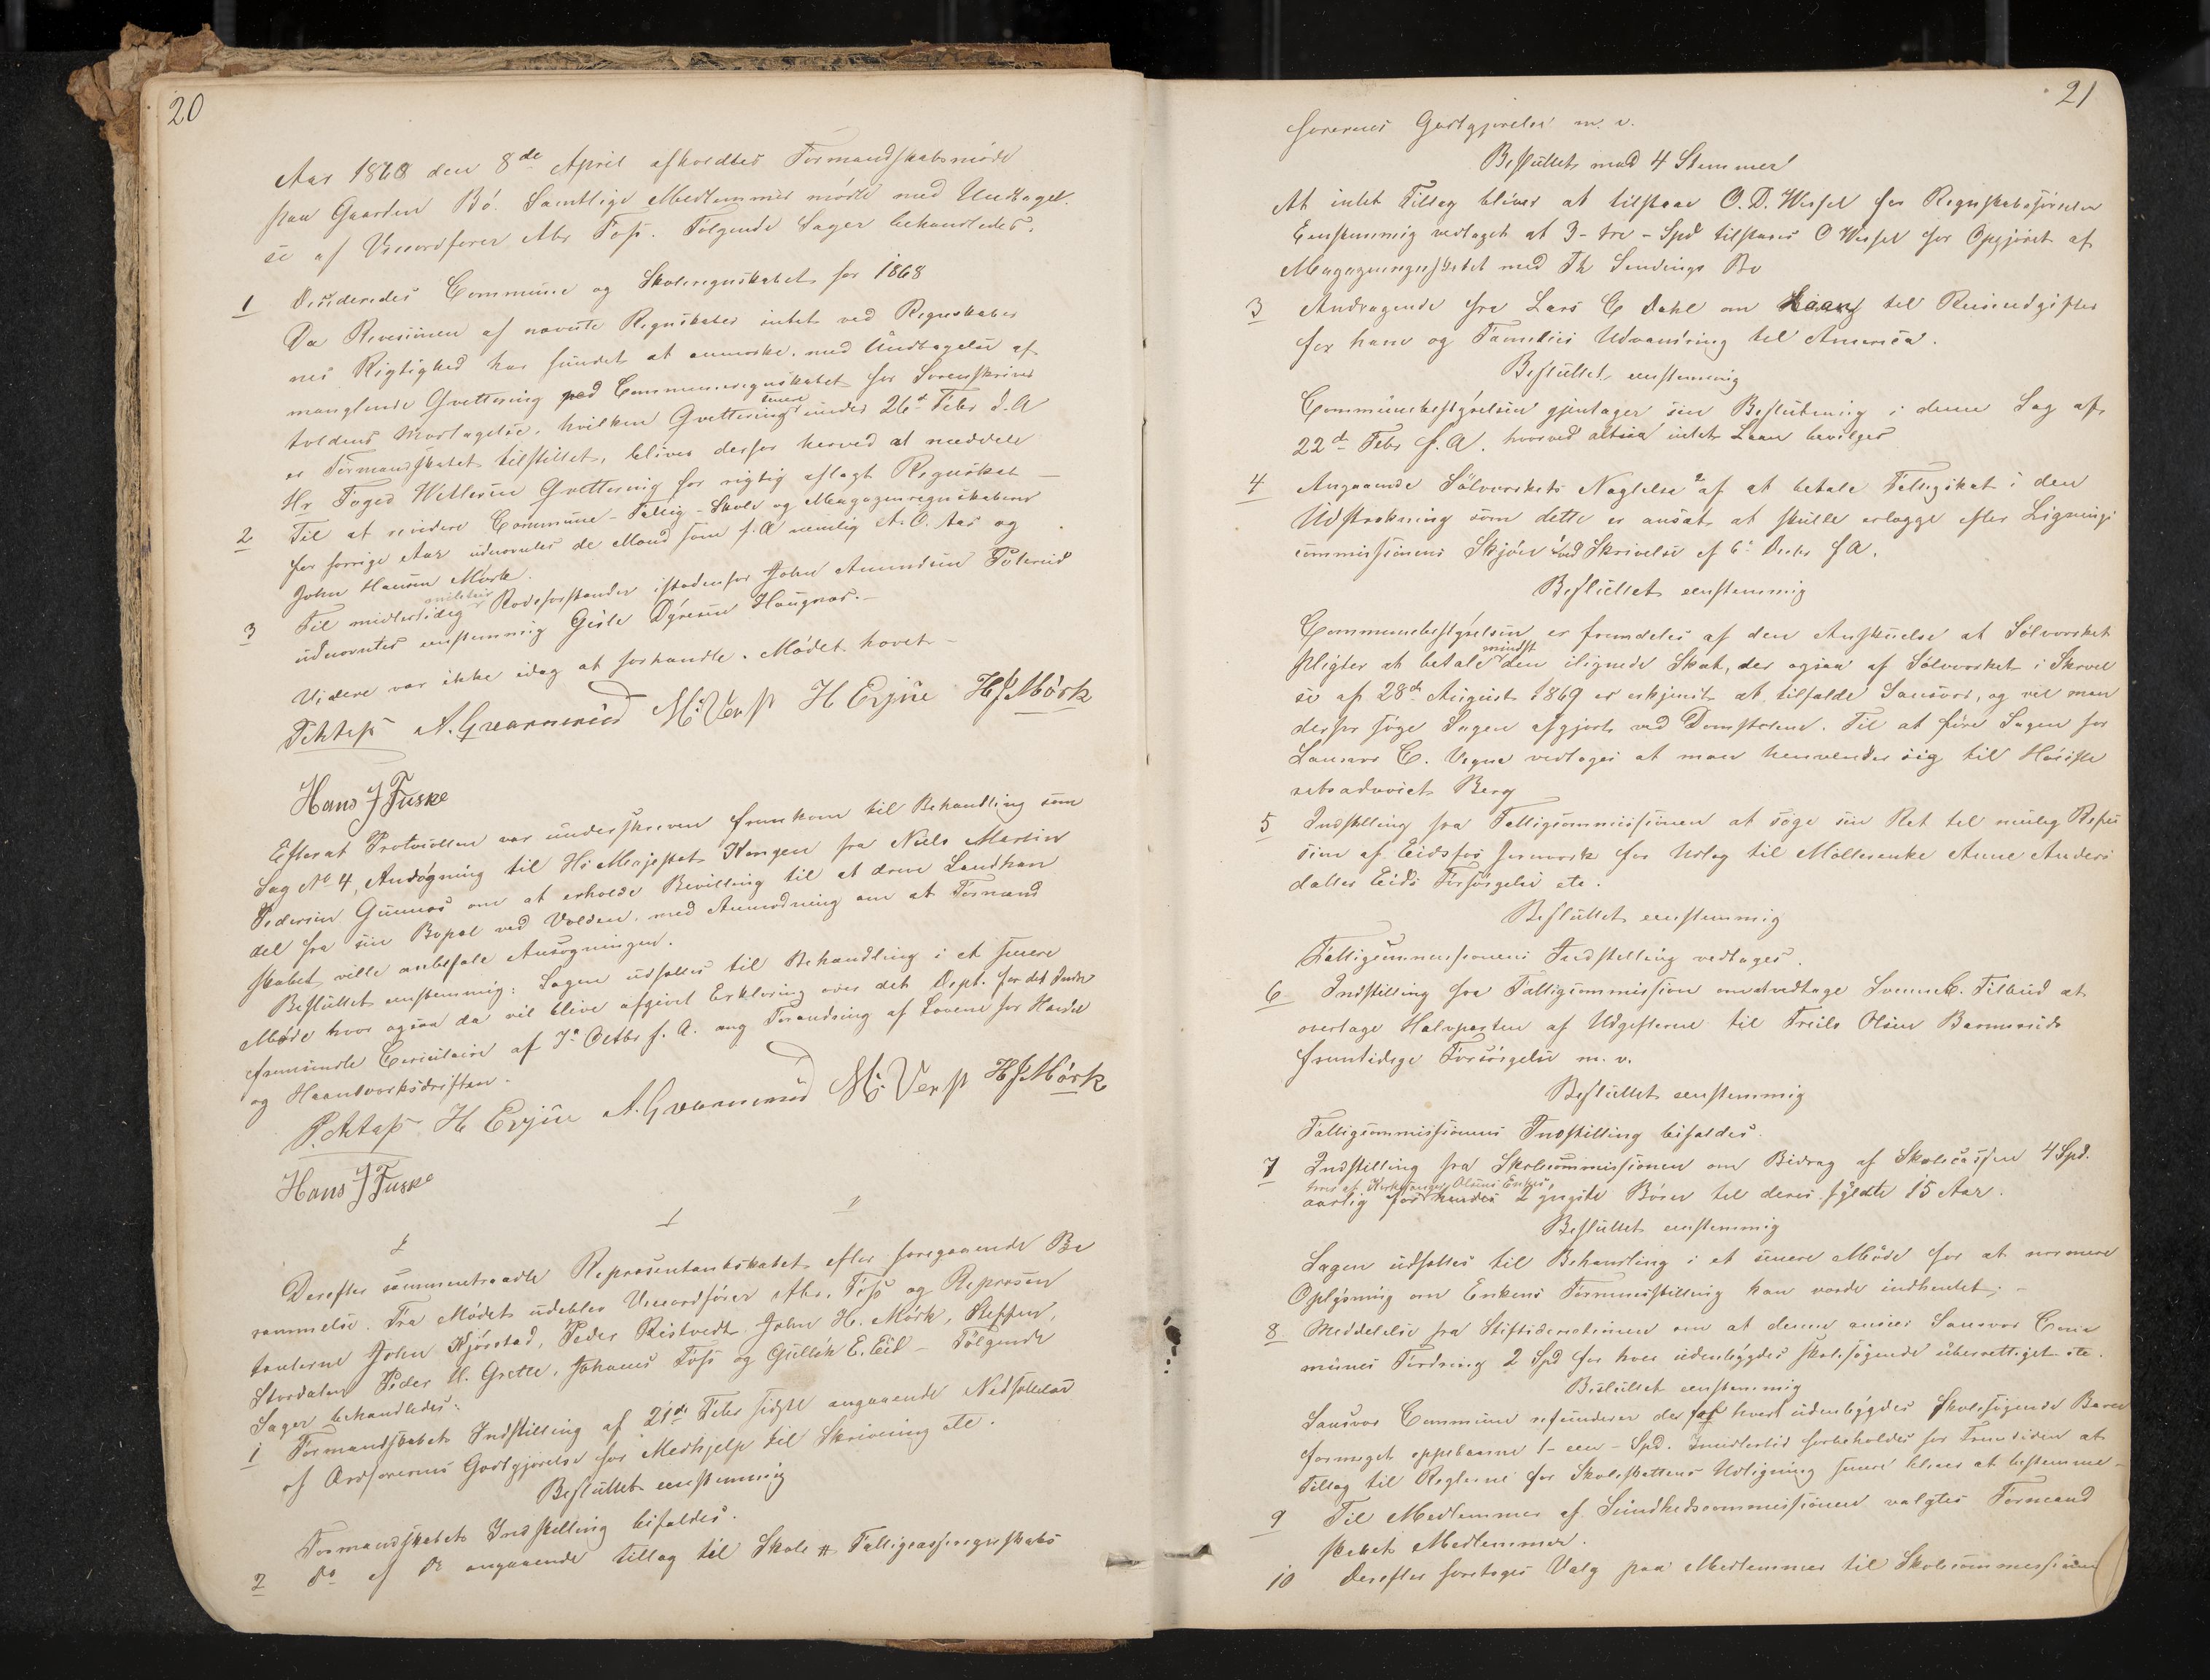 20
Aar 1868 den 8de April afholdtes Formandskabsmöde
paa Gaarden Bö. Samtlige Medlemmer mödte med Undtagel-
se af Viceordförer Abr Foss. Fölgende Sager behandledes.
1 Decideredes Commune og Skoleregnskabet for 1868
Da Revisionen af nævnte Regnskaber intet ved Regnskaber
nes Rigtighed har fundet at anmærke, med Undtagelse af
manglende Qvittering paa Communeregnskabet for Sorenskriver
toldens Modtagelse, hvilken Qvittering senere under 26d Febr d.A
er Formandskabet tilstillet, bliver derfor herved at meddele
Hr Foged Willersen Qvittering for rigtig aflagt Regnskab
2 Til at revidere Commune- Fattig- Skole og Magazinregnskaberne
for forrige Aar udnævntes de Mænd som f.A nemlig A. O. Aas og
John Hansen Mörk.
3 Til midlertidig militair Rodeforstander istedenfor John Amundsen Poterud
udnævntes eenstemmig Gisle Dyresen Haugnæs.-
Videre var ikke idag at forhandle. Mödet hævet-
A. Gvarnerud H Evju HJMörk
Hans J Fuske
Efterat Protocollen var underskreven fremkom til Behandling som
Sag No 4, Ansögning til Hs Majestæt Kongen fra Niels Martin
Pedersen Gunnes om at erholde Bevilling til at drive Landhan
del fra sin Bopæl ved Volden, med Anmodning om at Formand
skabet ville anbefale Ansögningen.
Besluttet eenstemmig: Sagen udsættes til Behandling i et senere
Möde hvor ogsaa da vil blive afgivet Erklæring over det Dept. for det Indre
fremsendte Circulaire af 7de Octbr f. A. ang Forandring af Lovene for Handel
og Haandværksdriften.
H Evju A. Gvarnerud HJMörk
Hans J Fuske
Derefter sammentraadte Repræsentantskabet efter foregaaende Be
rammelse. Fra Mödet udeblev Viceordförer Abr. Foss og Repræsen
tanterne John Hjörstad, Peder Ristvedt John H. Mörk, Steffen
Stordalen Peder H. Grette, Johannes Foss og Gullik E. Eid - Fölgende
Sager behandledes:
1 Formandskabets Indstilling af 21de Febr sidste angaaende Nedsættelse
af Ordförerens Godtgjörelse for Medhjelp til Skrivning etc.
Besluttet eenstemmig
Formandskabets Indstilling bifaldes.
2 Do af Do angaaende Tillæg til Skole & Fattigcasseregnskabs
21
förerens Godtgjörelse m. v.
Besluttet med 4 Stemmer
At intet Tillæg bliver at tilstaae O. D. Wessel for Regnskabsförselen
Eenstemmig vedtaget at 3- tre - Spd tilstaaes O Wessel for Opgjöret af
Magazinregnskabet med Th Sendings Bo
3 Andragende fra Lars C Dahl om Laan til Reiseudgifter
for ham og Families Udvandring til America.
Besluttet eenstemmig
Communebestyrelsen gjentager sin Beslutning i denne Sag af
22de Febr f.A. hvorved altsaa intet Laan bevilges
4 Angaaende Sölvværkets Nægtelse af at betale Fattigskat i den
Udstrækning som dette er ansat at skulle erlægge efter Lignings
commissionens Skjön ved Skrivelse af 6te Decbr f A.
Besluttet eenstemmig
Communebestyrelsen er fremdeles af den Anskuelse at Sölvværket
pligter at betale mindst den ilignede Skat, der ogsaa af Sölvværket i Skrivel
se af 28de August 1869 er erkjendt at tilfalde Sandsvær, og vil man
derfor söge Sagen afgjort ved Domstolene. Til at före Sagen for
Sandsvær C. Vegne vedtages at man henvender sig til Höieste
retsadvocat Berg
5 Indstilling fra Fattigcommissionen at söge sin Ret til mulig Refu
sion af Eidsfos Jernværk for Udlæg til Möllerenke Anne Anders
datter Eids Forsörgelse etc.
Besluttet eenstemmig
Fattigcommissionens Indstilling vedtages.
6 Indstilling fra Fattigcommission om at vedtage Svenne C. Tilbud at
overtage Halvparten af Udgifterne til Troels Olsen Barmeruds
fremtidige Forsörgelse m. v.
Besluttet eenstemmig
Fattigcommissionens Indstilling bifaldes.
7 Indstilling fra Skolecommissionen om Bidrag af Skolecassen 4 Spd.
aarlig for hendes 2 yngste Börn til deres fyldte 15 Aar.
Besluttet eenstemmig
Sagen udsættes til Behandling i et senere Möde for at nærmere
Oplysning om Enkens Formuestilling kan vorde indhentet.-
8 Meddelelse fra Stiftsdirectionen om at denne anseer Sandsvær Com
munes Fordring 2 Spd for hver udenbygdes skolesögende uberettiget etc.
Besluttet eenstemmig
Sandsvær Commune refunderer det for hvert udenbygdes skolesögende Barn
formeget oppebaarne 1- een - Spd. Imidlertid forbeholdes for Fremtiden at
Tillæg til Reglerne for Skoleskattens Udligning senere bliver at bestemme-
9 Til Medlemmer af Sundhedscommissionen valgtes Formand
skabets Medlemmer.
10 Derefter foretoges Valg paa Medlemmer til Skolecommissionen